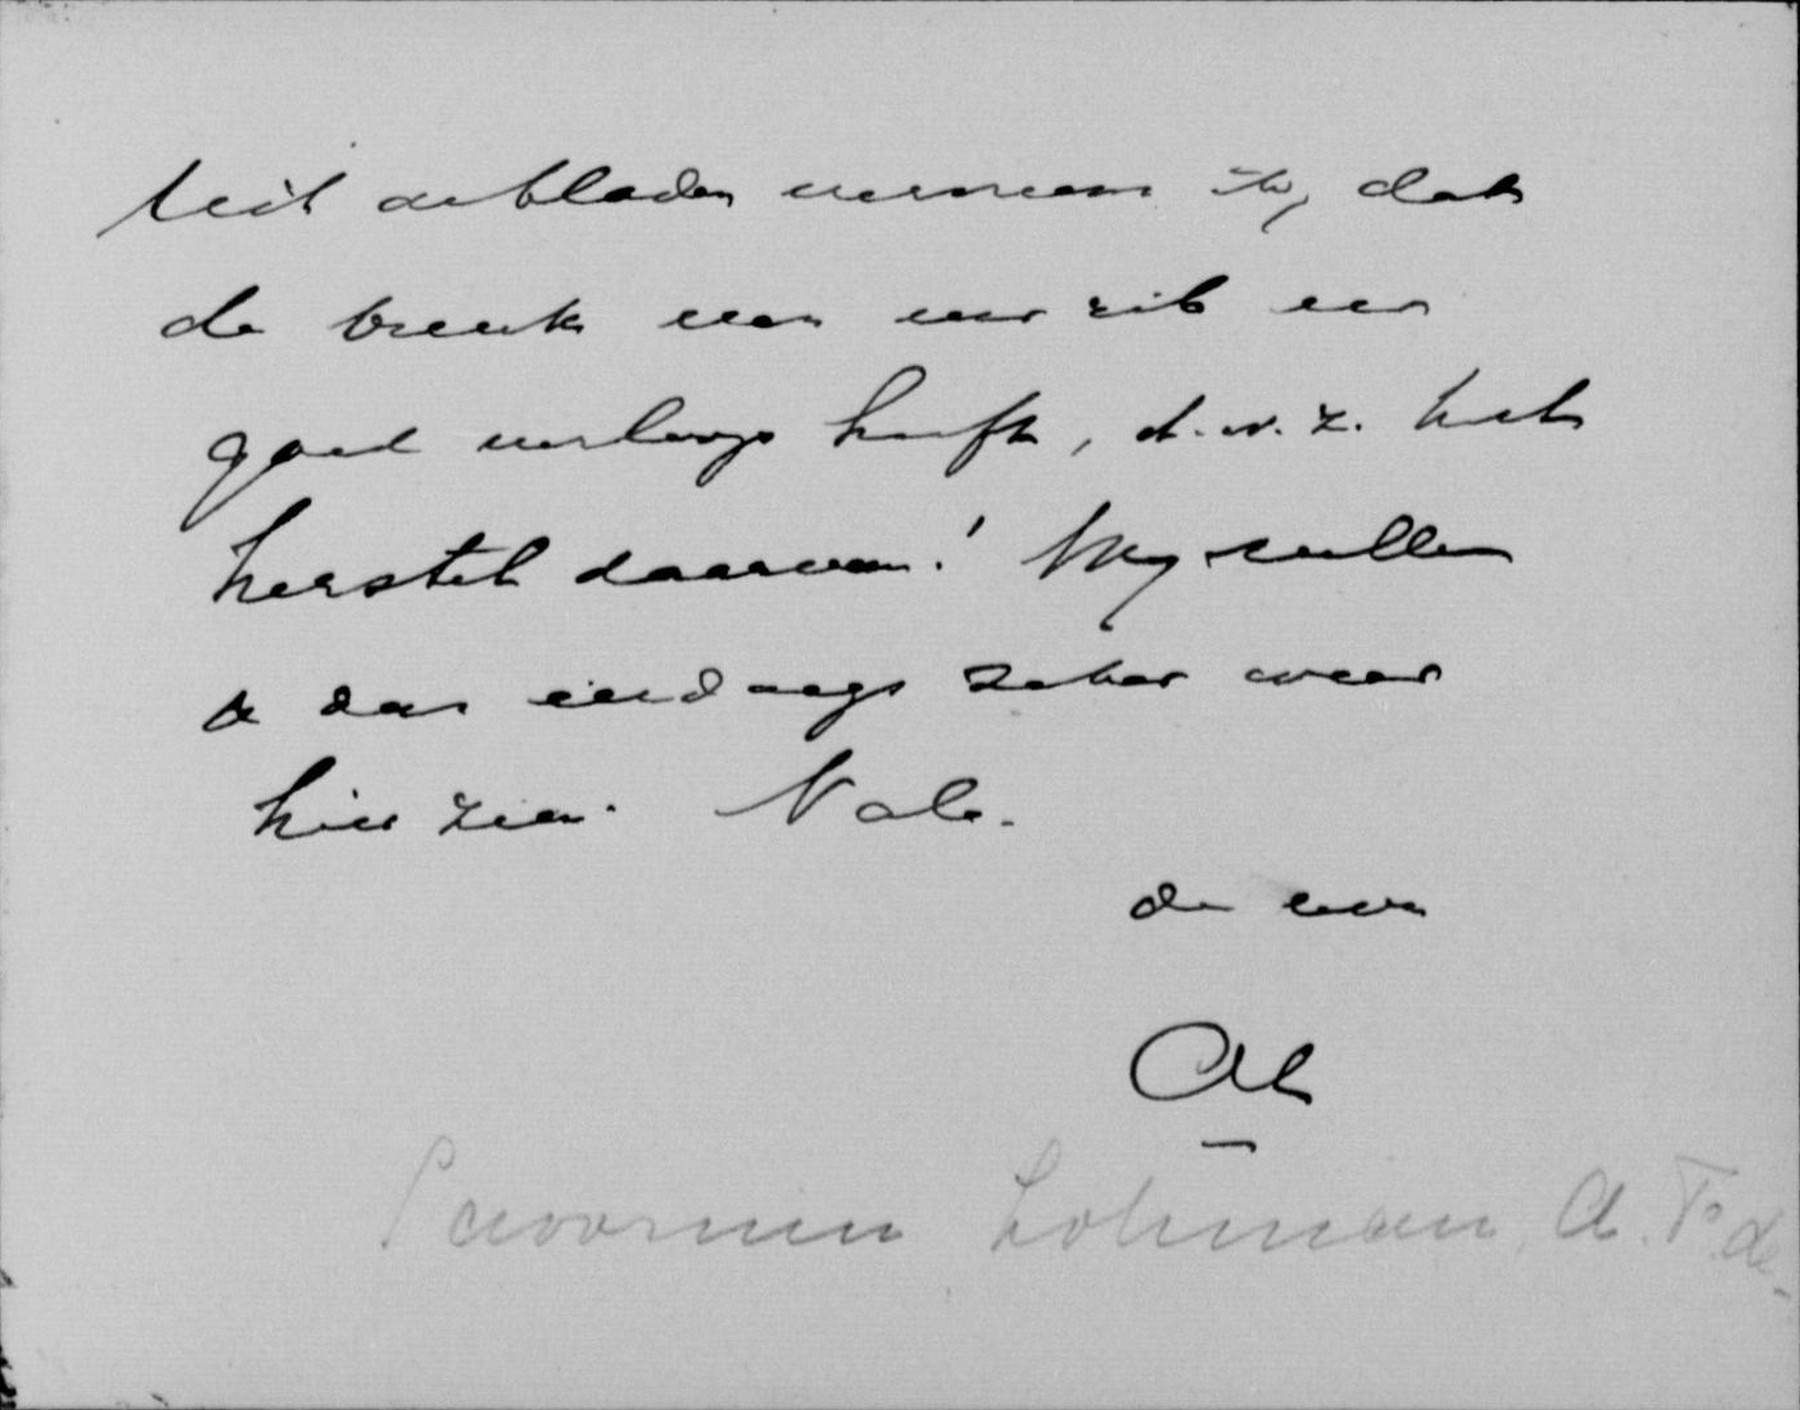 Uit de bladen verneem ik, dat
de breuk van uw rib een
goed verloop heeft, d.w.z. het
herstel daarvan! Wy zullen
U dan eerdaags zeker weer
hier zien. Vale.
de uwe
AL
Savornin Lohman, A. F. de